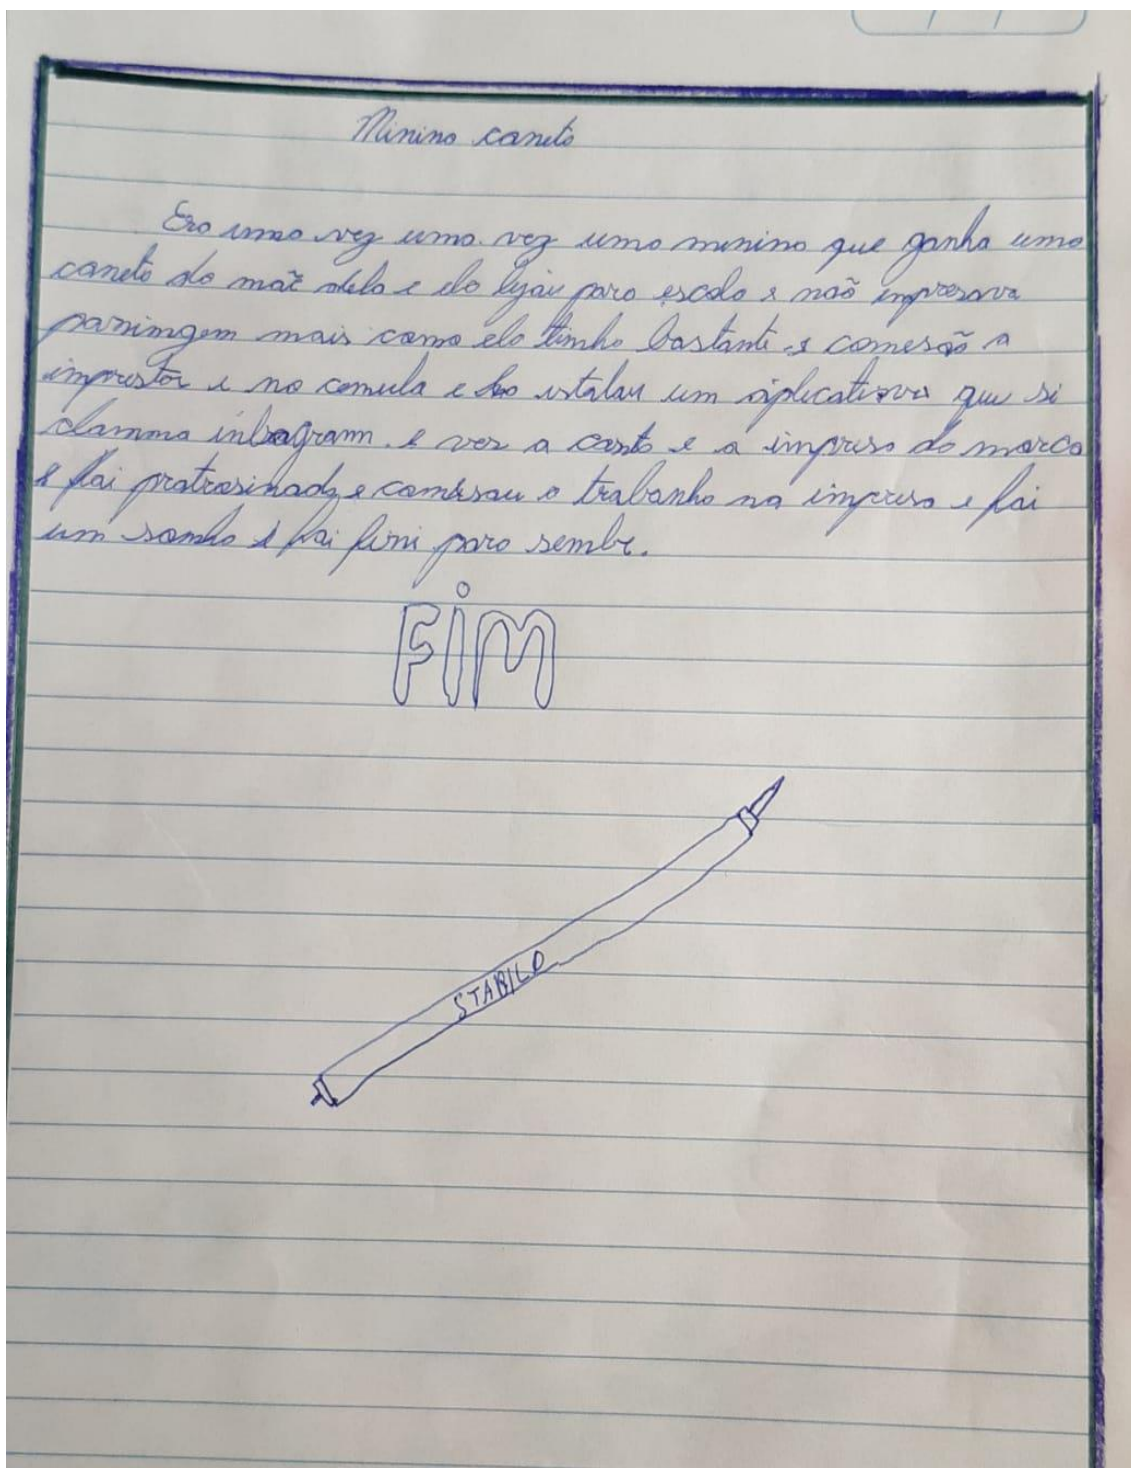 Minino caneta
Era uma vez uma vez uma menino que ganha uma
caneta da mãe dela e ela lejau para escola e não impresava
parningem mais como ela tinha bastante e comesaõ a
imprestar e no comula e ela istalau um aplicativa que si
clamma intragram e vez a canta e a impresa da marca
e fai patrosinada e comesau o trabanho na impresa e fai
um sonho e fai fini para sembr.
FiM
STABILO